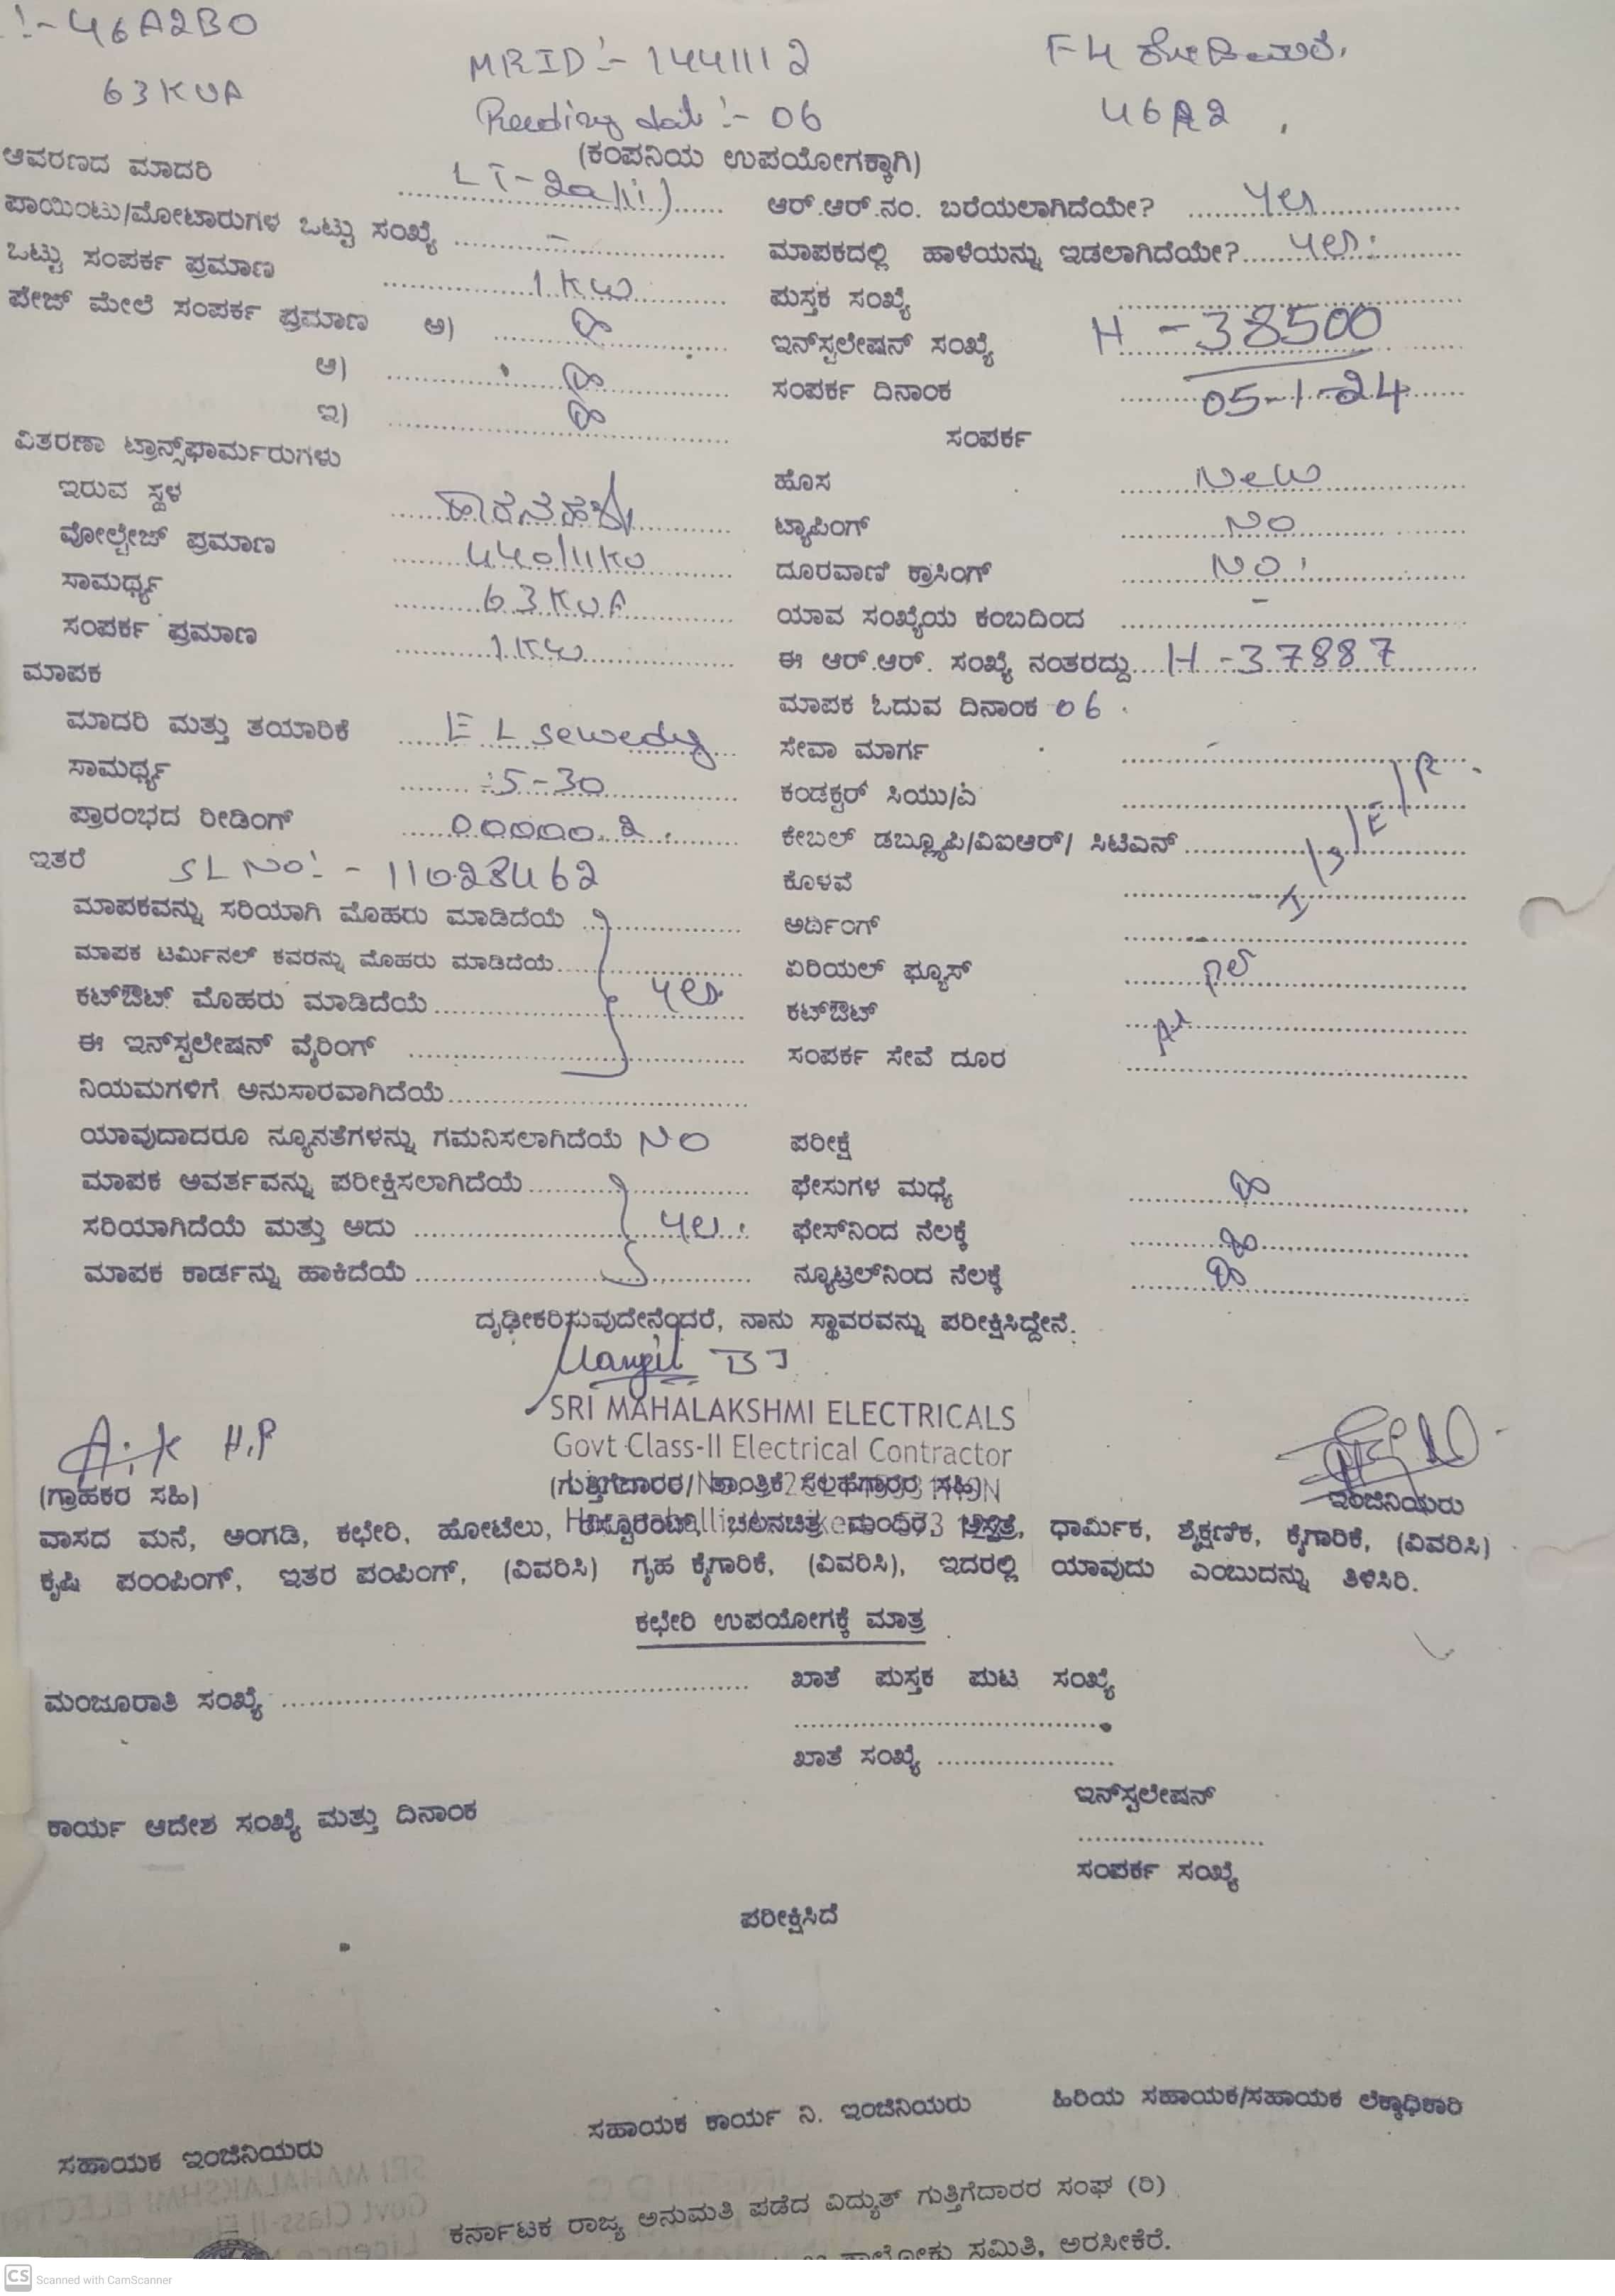 !- 46A2B0
MRID :- 1441112
F4
63 KVA
Reeding dat :- 06
46A2
(ಕಂಪನಿಯ ಉಪಯೋಗಕ್ಕಾಗಿ)
ಆವರಣದ ಮಾದರಿ LT-2a(ii)
ಆರ್.ಆರ್.ನಂ. ಬರೆಯಲಾಗಿದೆಯೇ? yes
ಪಾಯಿಂಟು/ಮೋಟಾರುಗಳ ಒಟ್ಟು ಸಂಖ್ಯೆ -
ಮಾಪಕದಲ್ಲಿ ಹಾಳೆಯನ್ನು ಇಡಲಾಗಿದೆಯೇ? yes
ಒಟ್ಟು ಸಂಪರ್ಕ ಪ್ರಮಾಣ 1 KW
ಪುಸ್ತಕ ಸಂಖ್ಯೆ
ಪೇಜ್ ಮೇಲೆ ಸಂಪರ್ಕ ಪ್ರಮಾಣ ಅ)
ಇನ್‌ಸ್ಟಲೇಷನ್ ಸಂಖ್ಯೆ H - 38500
ಆ)
ಸಂಪರ್ಕ ದಿನಾಂಕ 05-1-24
ಇ)
ಸಂಪರ್ಕ
ವಿತರಣಾ ಟ್ರಾನ್ಸ್‌ಫಾರ್ಮರುಗಳು
ಇರುವ ಸ್ಥಳ
ಹೊಸ New
ವೋಲ್ಟೇಜ್ ಪ್ರಮಾಣ 440/11KV
ಟ್ಯಾಪಿಂಗ್ NO
ಸಾಮರ್ಥ್ಯ 63 KVA
ದೂರವಾಣಿ ಕ್ರಾಸಿಂಗ್ NO
ಸಂಪರ್ಕ ಪ್ರಮಾಣ 1 KW
ಯಾವ ಸಂಖ್ಯೆಯ ಕಂಬದಿಂದ -
ಮಾಪಕ
ಈ ಆರ್.ಆರ್. ಸಂಖ್ಯೆ ನಂತರದ್ದು H - 37887
ಮಾಪಕ ಓದುವ ದಿನಾಂಕ 06
ಮಾದರಿ ಮತ್ತು ತಯಾರಿಕೆ EL sewedy
ಸೇವಾ ಮಾರ್ಗ
ಸಾಮರ್ಥ್ಯ 5-30
ಕಂಡಕ್ಟರ್ ಸಿಯು/ಎ
ಪ್ರಾರಂಭದ ರೀಡಿಂಗ್ 00000.2
ಕೇಬಲ್ ಡಬ್ಲ್ಯೂಪಿ/ವಿಐಆರ್/ ಸಿಟಿಎನ್
ಇತರೆ SL NO :- 11028462
ಕೊಳವೆ
ಮಾಪಕವನ್ನು ಸರಿಯಾಗಿ ಮೊಹರು ಮಾಡಿದೆಯೆ
ಅರ್ಥಿಂಗ್
ಮಾಪಕ ಟರ್ಮಿನಲ್ ಕವರನ್ನು ಮೊಹರು ಮಾಡಿದೆಯೆ
ಏರಿಯಲ್ ಫ್ಯೂಸ್
ಕಟ್‌ಔಟ್ ಮೊಹರು ಮಾಡಿದೆಯೆ yes
ಕಟ್‌ಔಟ್
ಈ ಇನ್‌ಸ್ಟಲೇಷನ್ ವೈರಿಂಗ್
ಸಂಪರ್ಕ ಸೇವೆ ದೂರ
ನಿಯಮಗಳಿಗೆ ಅನುಸಾರವಾಗಿದೆಯೆ
ಯಾವುದಾದರೂ ನ್ಯೂನತೆಗಳನ್ನು ಗಮನಿಸಲಾಗಿದೆಯೆ NO
ಪರೀಕ್ಷೆ
ಮಾಪಕ ಆವರ್ತವನ್ನು ಪರೀಕ್ಷಿಸಲಾಗಿದೆಯೆ
ಫೇಸುಗಳ ಮಧ್ಯೆ
ಸರಿಯಾಗಿದೆಯೆ ಮತ್ತು ಅದು yes
ಫೇಸ್‌ನಿಂದ ನೆಲಕ್ಕೆ
ಮಾಪಕ ಕಾರ್ಡನ್ನು ಹಾಕಿದೆಯೆ
ನ್ಯೂಟ್ರಲ್‌ನಿಂದ ನೆಲಕ್ಕೆ
ದೃಢೀಕರಿಸುವುದೇನೆಂದರೆ, ನಾನು ಸ್ಥಾವರವನ್ನು ಪರೀಕ್ಷಿಸಿದ್ದೇನೆ.
SRI MAHALAKSHMI ELECTRICALS
Govt Class-II Electrical Contractor
(ಗ್ರಾಹಕರ ಸಹಿ)
(ಗುತ್ತಿಗೆದಾರರ/ ತಾಂತ್ರಿಕ ಸಲಹೆಗಾರರ ಸಹಿ)
ಇಂಜಿನಿಯರು
ವಾಸದ ಮನೆ, ಅಂಗಡಿ, ಕಛೇರಿ, ಹೋಟೆಲು, ಚಲನಚಿತ್ರ ಮಂದಿರ ಧಾರ್ಮಿಕ, ಶೈಕ್ಷಣಿಕ, ಕೈಗಾರಿಕೆ, (ವಿವರಿಸಿ)
ಕೃಷಿ ಪಂಂಪಿಂಗ್, ಇತರ ಪಂಪಿಂಗ್, (ವಿವರಿಸಿ) ಗೃಹ ಕೈಗಾರಿಕೆ, (ವಿವರಿಸಿ), ಇದರಲ್ಲಿ ಯಾವುದು ಎಂಬುದನ್ನು ತಿಳಿಸಿರಿ.
ಕಛೇರಿ ಉಪಯೋಗಕ್ಕೆ ಮಾತ್ರ
ಮಂಜೂರಾತಿ ಸಂಖ್ಯೆ
ಖಾತೆ ಪುಸ್ತಕ ಪುಟ ಸಂಖ್ಯೆ
ಖಾತೆ ಸಂಖ್ಯೆ
ಇನ್‌ಸ್ಟಲೇಷನ್
ಕಾರ್ಯ ಆದೇಶ ಸಂಖ್ಯೆ ಮತ್ತು ದಿನಾಂಕ
ಸಂಪರ್ಕ ಸಂಖ್ಯೆ
ಪರೀಕ್ಷಿಸಿದೆ
ಸಹಾಯಕ ಇಂಜಿನಿಯರು
ಸಹಾಯಕ ಕಾರ್ಯ ನಿ. ಇಂಜಿನಿಯರು
ಹಿರಿಯ ಸಹಾಯಕ/ಸಹಾಯಕ ಲೆಕ್ಕಾಧಿಕಾರಿ
ಕರ್ನಾಟಕ ರಾಜ್ಯ ಅನುಮತಿ ಪಡೆದ ವಿದ್ಯುತ್ ಗುತ್ತಿಗೆದಾರರ ಸಂಘ (ರಿ)
ತಾಲ್ಲೋಕು ಸಮಿತಿ, ಅರಸೀಕೆರೆ.
CS Scanned with CamScanner